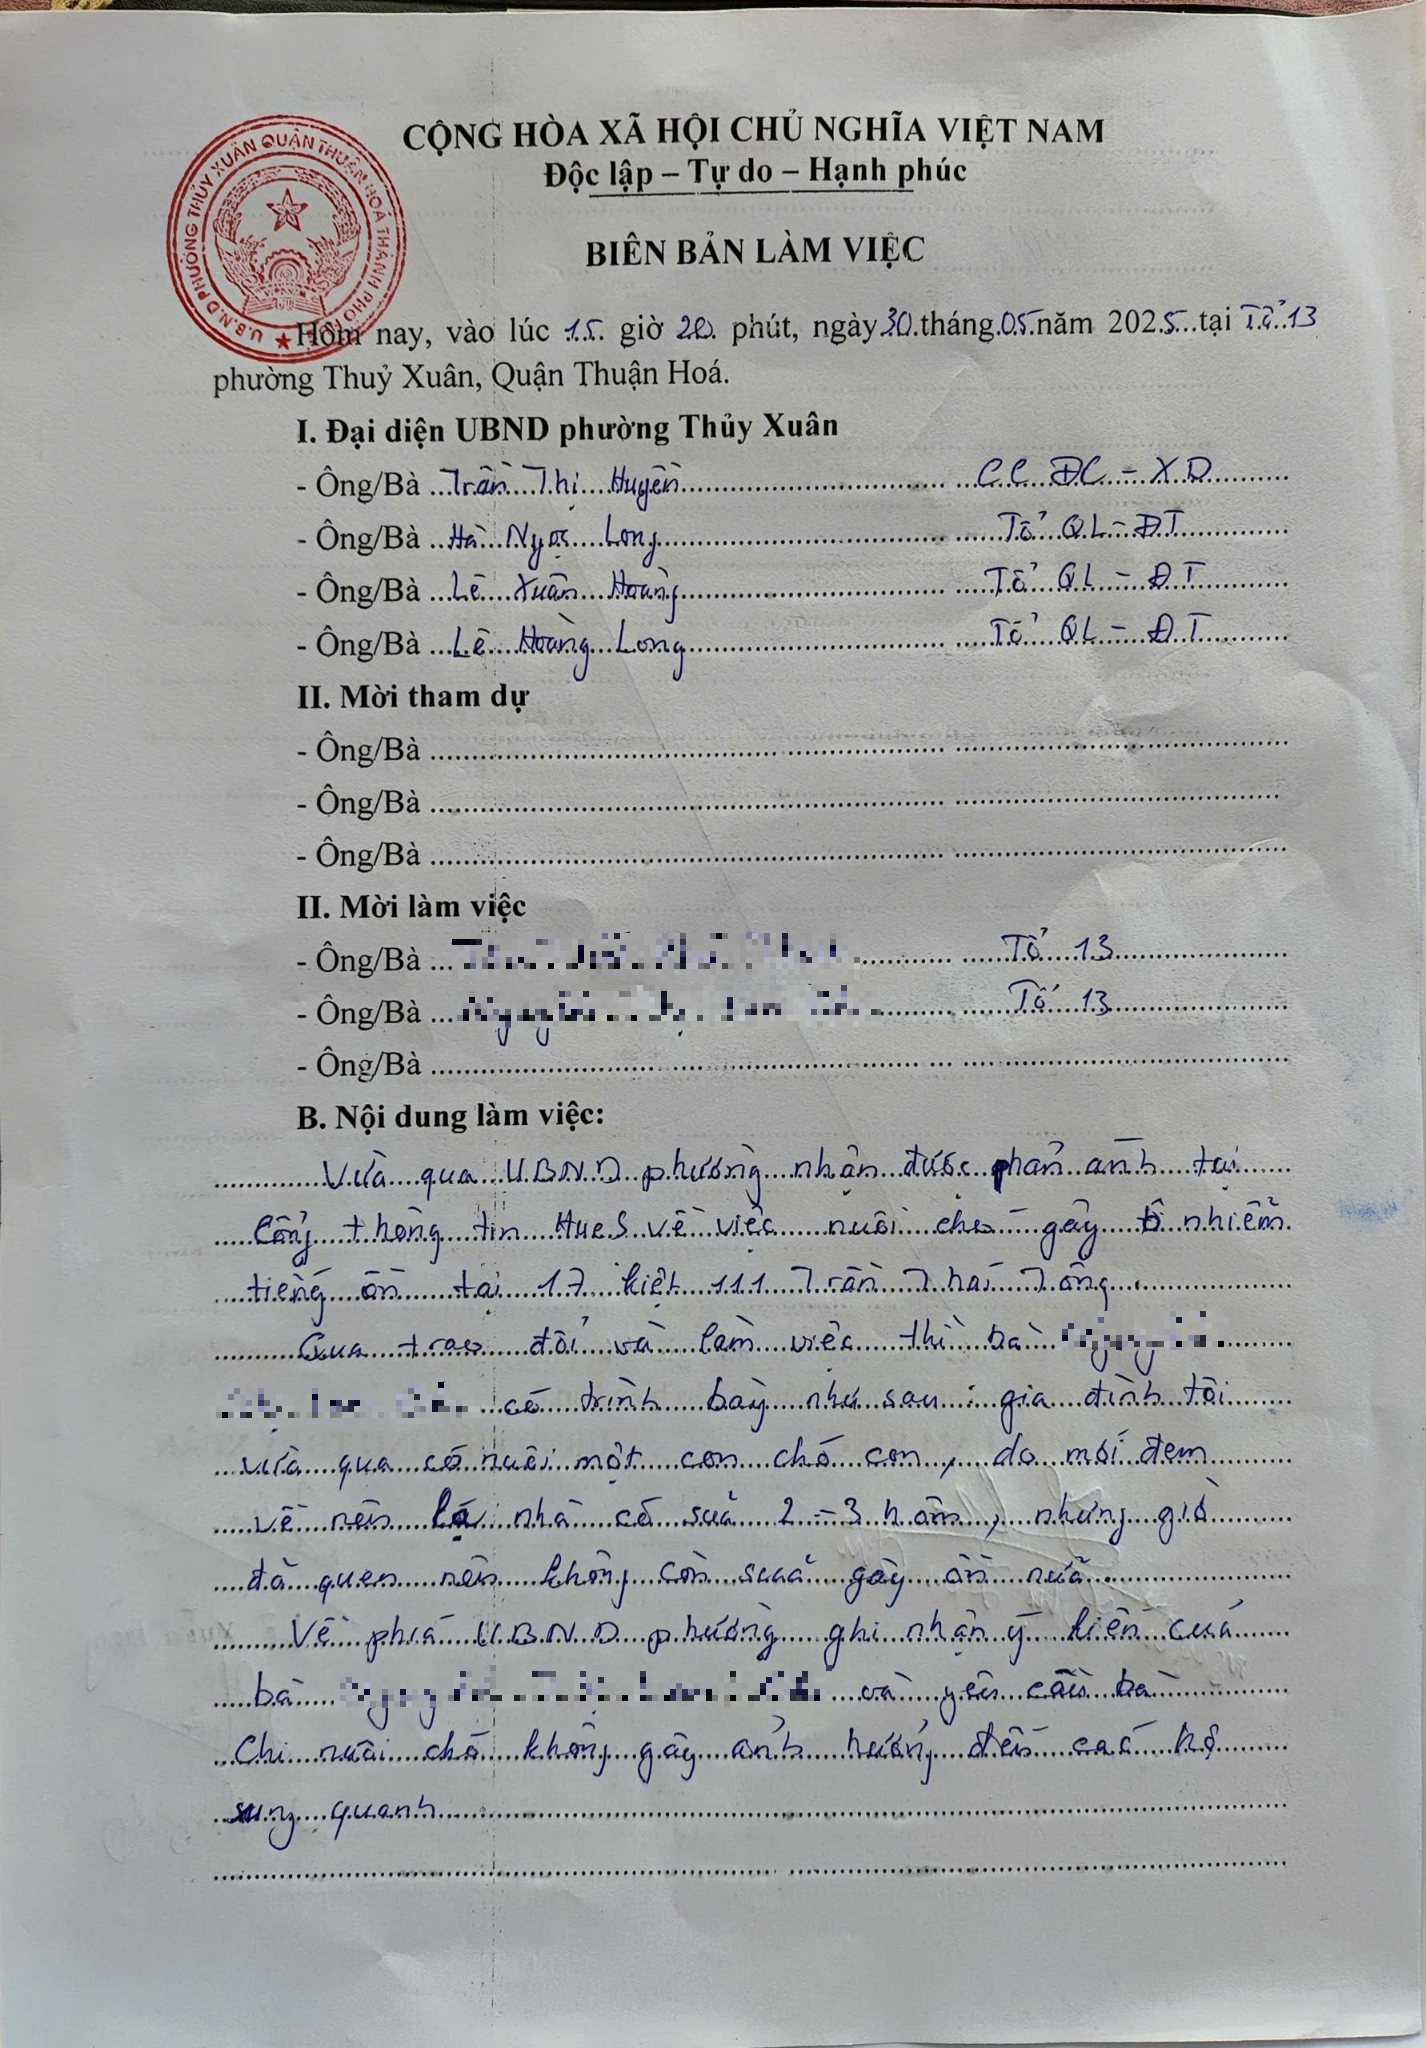 U.B.N.D PHƯỜNG THỦY XUÂN QUẬN THUẬN HOÁ THÀNH PHỐ HUẾ
CỘNG HÒA XÃ HỘI CHỦ NGHĨA VIỆT NAM
Độc lập – Tự do – Hạnh phúc
BIÊN BẢN LÀM VIỆC
Hôm nay, vào lúc 15 giờ 20 phút, ngày 30 tháng 05 năm 2025 tại Tổ 13
phường Thuỷ Xuân, Quận Thuận Hoá.
I. Đại diện UBND phường Thủy Xuân
- Ông/Bà Trần Thị Huyền CC ĐC - XD
- Ông/Bà Hà Ngọc Long Tổ QL - ĐT
- Ông/Bà Lê Xuân Hoàng Tổ QL - ĐT
- Ông/Bà Lê Hoàng Long Tổ QL - ĐT
II. Mời tham dự
- Ông/Bà
- Ông/Bà
- Ông/Bà
II. Mời làm việc
- Ông/Bà Tổ 13
- Ông/Bà Tổ 13
- Ông/Bà
B. Nội dung làm việc:
Vừa qua UBND phường nhận được phản ánh tại
Cổng thông tin HueS về việc nuôi chó gây ô nhiễm
tiếng ồn tại 17 kiệt 111 Trần Thái Tông.
Qua trao đổi và làm việc thì bà
có trình bày như sau: gia đình tôi
vừa qua có nuôi một con chó con, do mới đem
về nên lạ nhà có sủa 2 - 3 hôm, nhưng giờ
đã quen nên không còn sủa gây ồn nữa.
Về phía UBND phường ghi nhận ý kiến của
bà và yêu cầu bà
Chi nuôi chó không gây ảnh hưởng đến các hộ
xung quanh